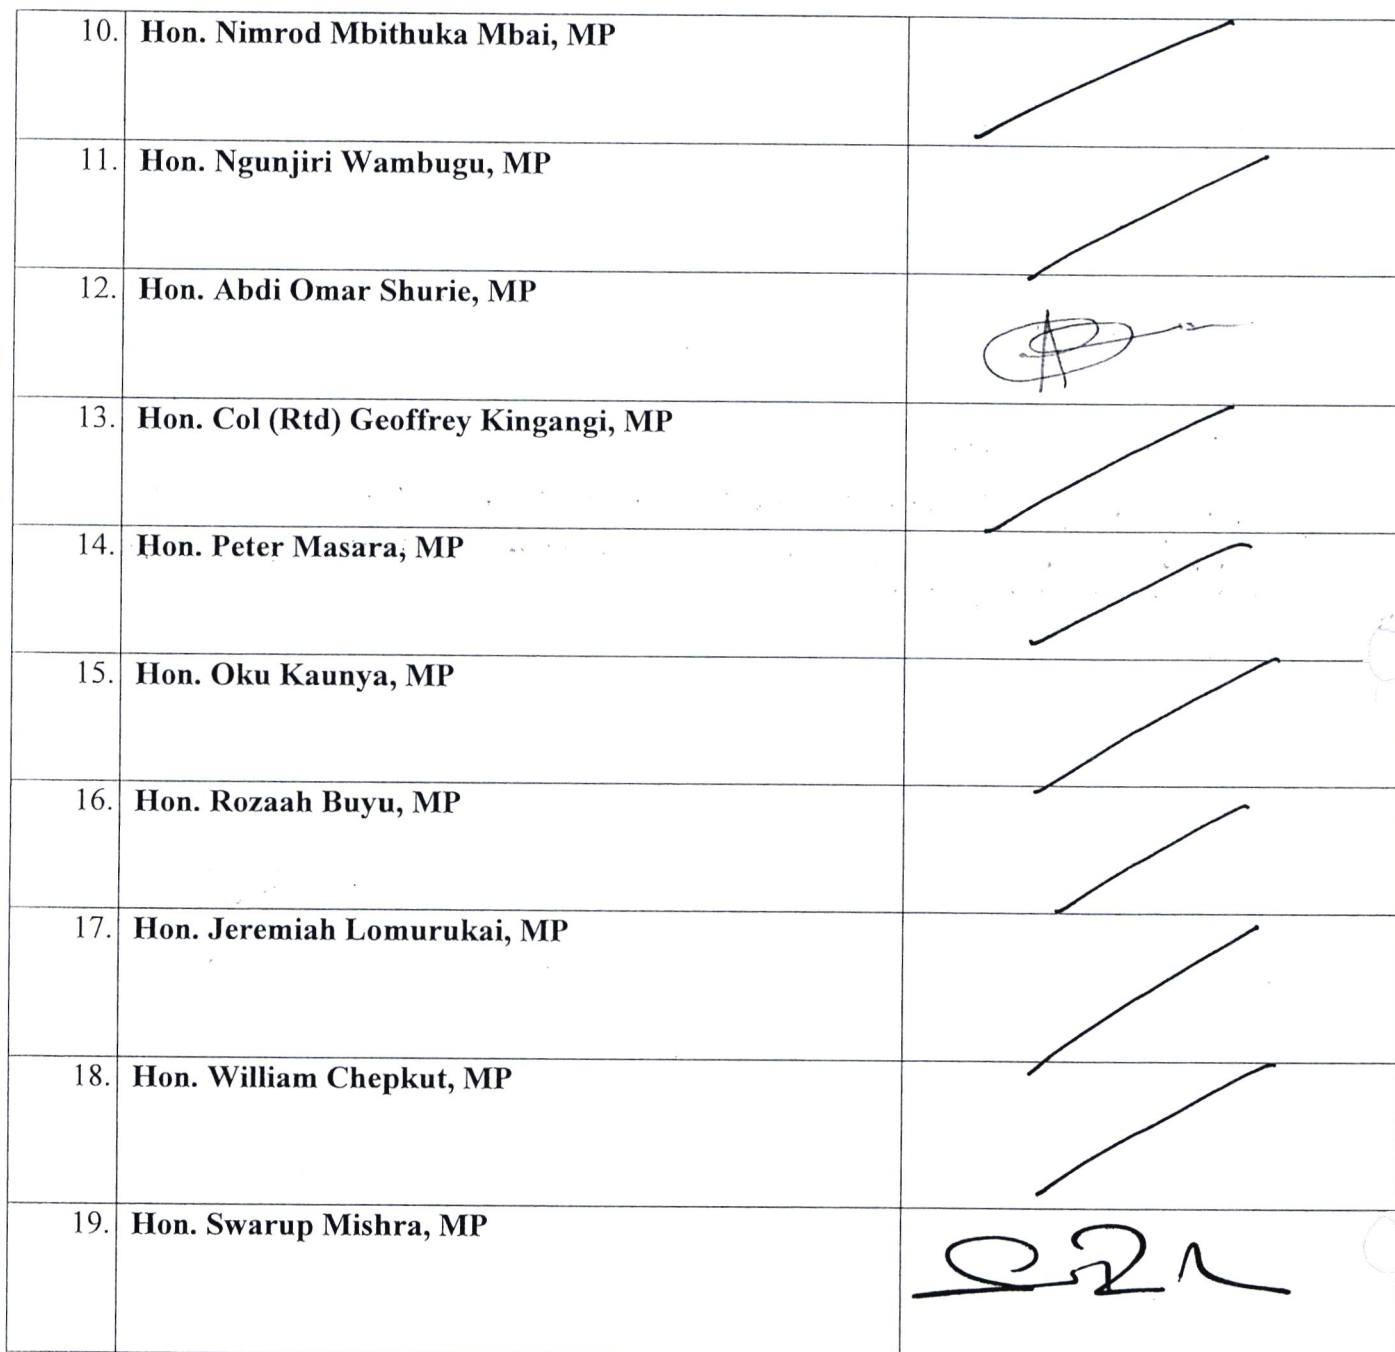 10. Hon. Nimrod Mbithuka Mbai, MP
11. Hon. Ngunjiri Wambugu, MP
12. Hon. Abdi Omar Shurie, MP
13. Hon. Col (Rtd) Geoffrey Kingangi, MP
14. Hon. Peter Masara, MP
15. Hon. Oku Kaunya, MP
16. Hon. Rozaah Buyu, MP
17. Hon. Jeremiah Lomurukai, MP
18. Hon. William Chepkut, MP
19. Hon. Swarup Mishra, MP